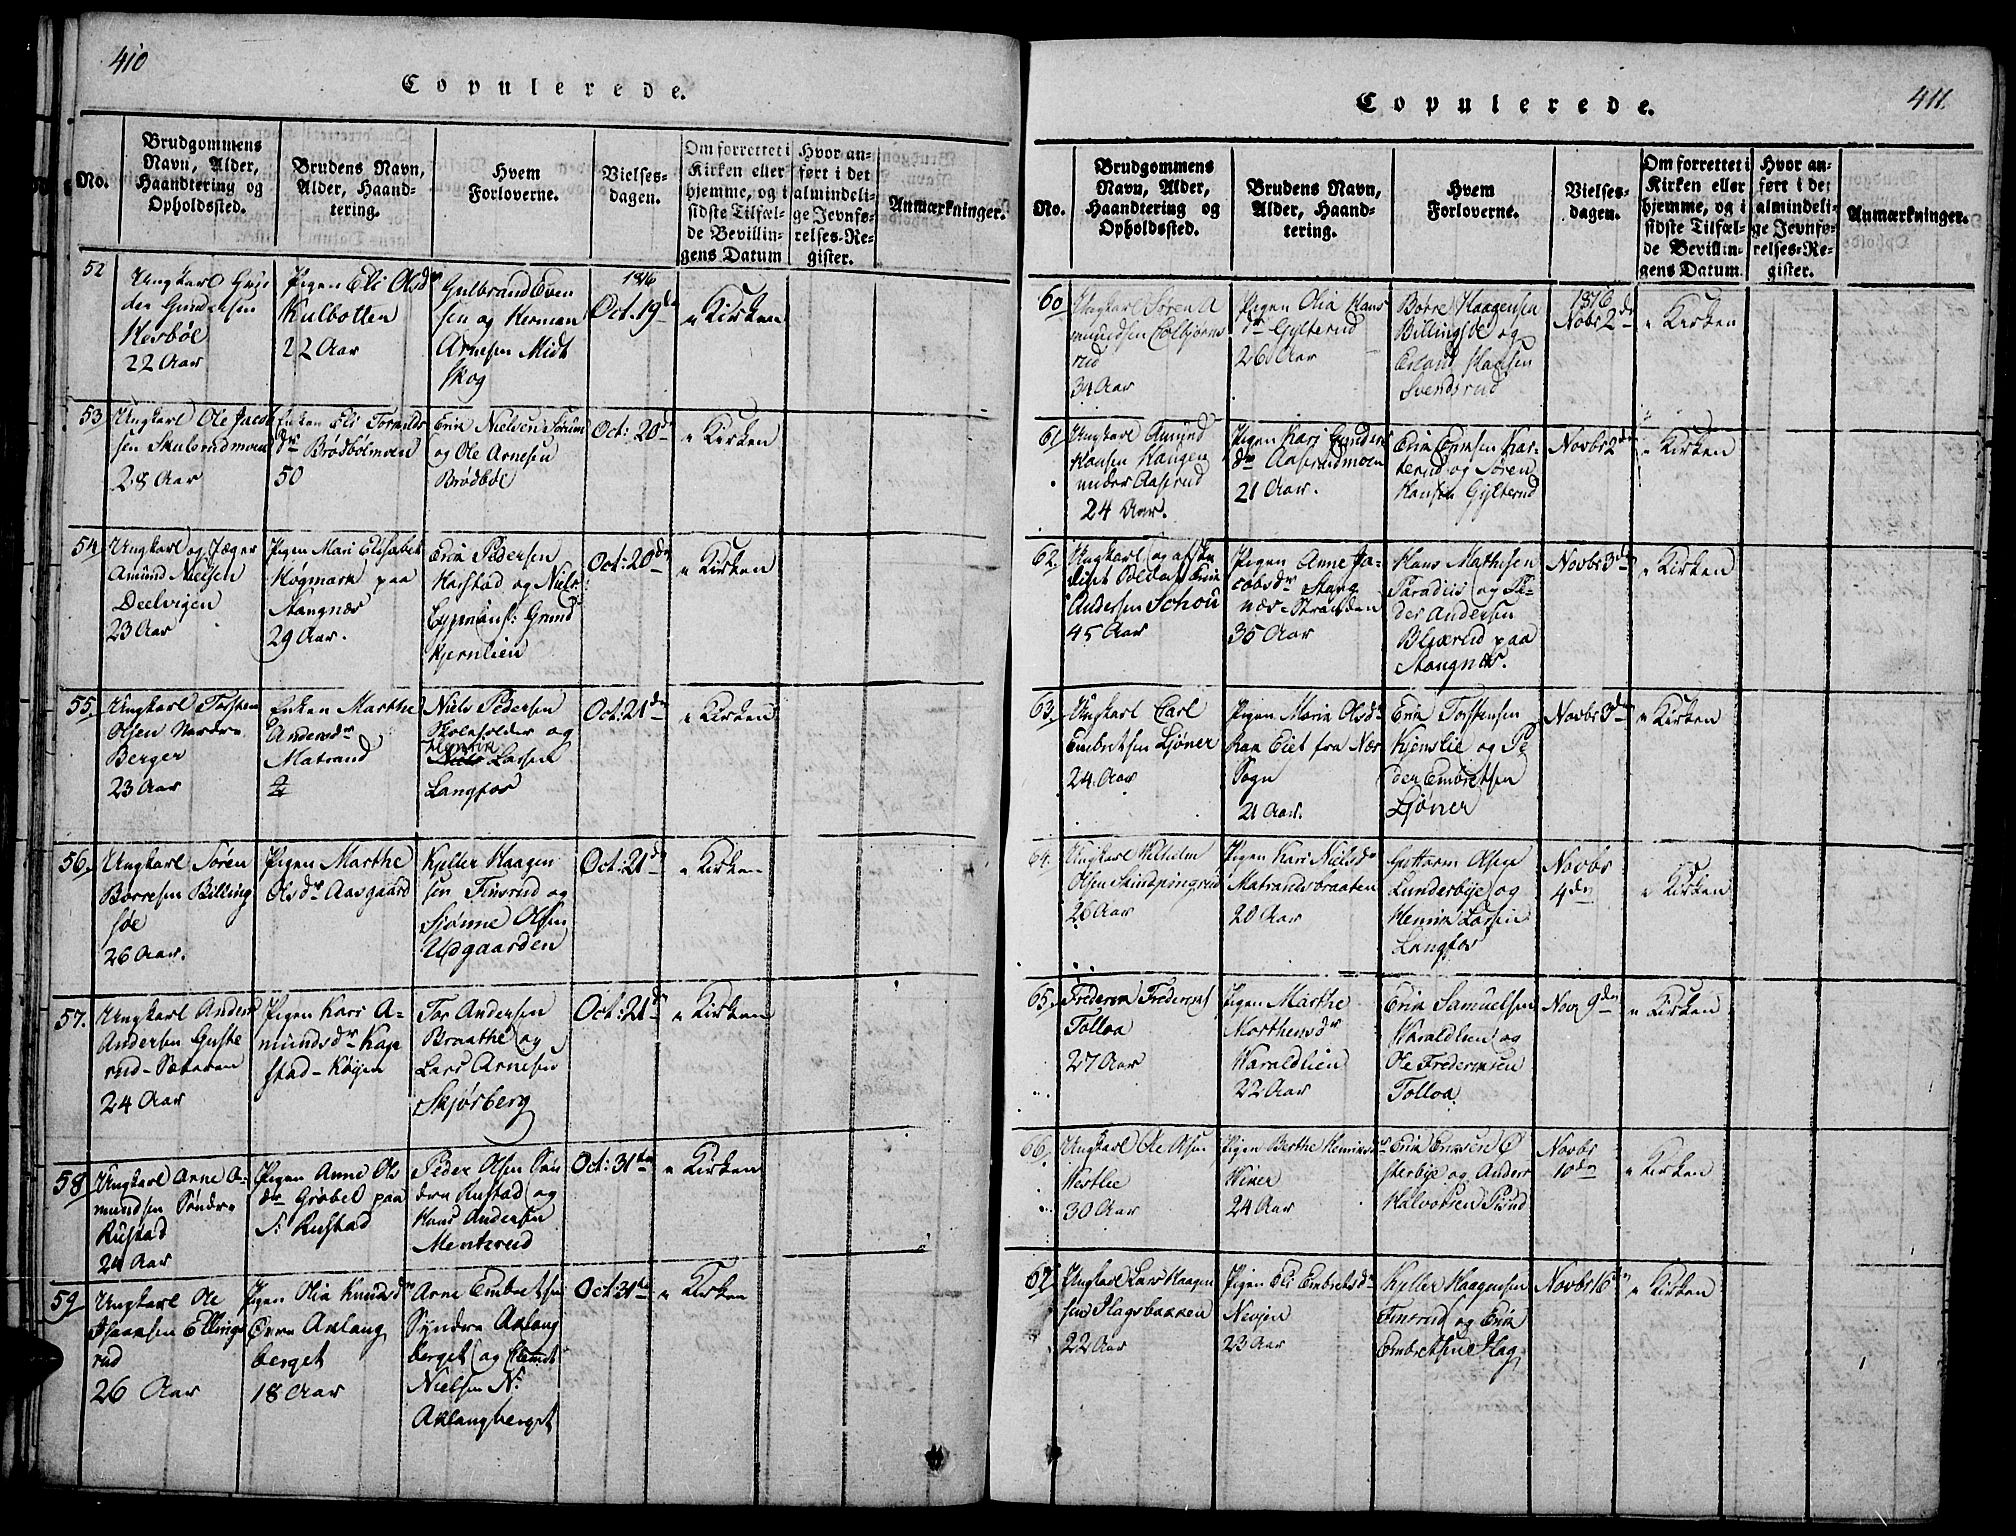 410
Copulerede.
No.
Brudgommens
Navn, Alder,
Haandtering og
Opholdssted.
Brudens Navn,
Alder, Haand-
tering.
Hvem
Forloverne.
Vielses-
dagen.
Om forrettet i
Kirken eller
hjemme, og i
sidste Tilfæl-
de Bevillin-
gens Datum
Hvor an-
ført i det
almindeli-
ge Jevnfø-
relses-Re-
gister.
Anmærkninger.
52
Ungkarl Gun
der Gundersen
Hesbøl
22 Aar
Pigen Eli Olsdr
Kulbotten
22 Aar
Gulbrand Even
sen og Herman
Arnesen Midt
skog
1816
Oct. 19de
i Kirken
53
Ungkarl Ole Jacob
sen Skulerudmoen
28 Aar
Enken Eli
dr Brødbølmoen
50
Erik Nielsen Sorum
og Ole Arnesen
Brødbøl
Oct: 20de
i Kirken
54
Ungkarl og Jæger
Amund Nielsen
Deelvigen
23 Aar
Pigen Mari Elisabet
Høgmark paa
Stangnæs
29 Aar.
Erik Pedersen
Harstad og Niels
Grund
kjernlien
Oct: 20de
i Kirken
55.
Ungkarl Torsten
Olsen Nordre
Berger
23 Aar
Enken Marthe
Andersdr
Matrand
Niels Pedersen
Skoleholder og
Henrik
Larsen
Langfos
Oct: 21de
i Kirken
56.
Ungkarl Søren
Borresen Billing
søe
26 Aar.
Pigen Marthe
Olsdr Aasgaard
Kjelter Haagen
sen Finsrud og
Sjønne Olsen
Udgaarden
Oct: 21de
i Kirken
57.
Ungkarl Anders
Andersen Guste
rud-Sæteren
24 Aar
Pigen Kari A-
mundsdr Kap
stad-Kögen
Tor Andersen
Braathe og
Lars Arnesen
Skjørberg
Oct: 21de
i Kirken
58
Ungkarl Arne A-
mundsen Søndre
Rustad
24 Aar
Pigen Anne Ols
dr Grøbel paa
S: Rustad
Peder Olsen Søn
dre Rustad og
Hans Andersen
Menterud
Oct: 31te
i Kirken
59
Ungkarl Ole
Isaaksen Ellings
rud
26 Aar
Pigen Olia Knudsdr
Øvre Aklang
berget
18 Aar
Arne Embretsen
Syndre Aklang
berget og Clemet
Nielsen N:
Aklangberget
Oct: 31te
i Kirken
411.
Copulerede.
No.
Brudgommens
Navn, Alder,
Haandtering og
Opholdssted.
Brudens Navn,
Alder, Haand-
tering.
Hvem
Forloverne.
Vielses-
dagen.
Om forrettet i
Kirken eller
hjemme, og i
sidste Tilfæl-
de Bevillin-
gens Datum.
Hvor an-
ført i det
almindeli-
ge Jevnfø-
relses-Re-
gister.
Anmærkninger.
60
Ungkarl Søren A
mundsen Colbjørns
rud
34 Aar
Pigen Olia Hans
dr Gylterud
26 Aar
Børre Haagensen
Billingsøe og
Erland Hansen
Svendsrud
1816
Nobr 2de
i Kirken
61
Ungkarl Amund
Hansen Haugen
under Aaserud
24 Aar.
Pigen Kari Gunders
dr Aaserudmoen
21 Aar.
Erik Eriksen Kar-
terud og Søren
Hansen Gylterud
Novbr 2de
i Kirken
62.
Ungkarl og afske
diget Soldat Erik
Andersen Schou
45 Aar
Pigen Anne Ja-
cobsdr Stang
næs-Stranden
35 Aar
Hans Mathisen
Paradiis og Pe-
der Andersen
paa
Stangnæs.
Novbr 3de
i Kirken
63.
Ungkarl Carl
Embretsen Ljøner
24 Aar
Pigen Maria Olsdr
Eiet fra Næs
Sogn
21 Aar.
Erik Torstensen
Kjenslie og Pe
der Embretsen
Ljøner
Novbr 3de
i Kirken
64.
Ungkarl Wilhelm
Olsen Skindpungrud
26 Aar
Pigen Kari Nielsdr
Matrandsbraaten
20 Aar
Guttorm Olsen
Lunderbye og
Henrik Larsen
Langfos
Novbr
4de
i Kirken
65.
Frederik Frederiks
Tolloa
27 Aar
Pigen Marthe
Morthensdr
Haraldlien
22 Aar
Erik Samuelsen
Haraldlien og
Ole Frederiksen
Tolloa.
Nov. 9de
i Kirken
66.
Ungkarl Ole Olsen
Hestlie
30 Aar
Pigen Berthe Henriksdr
Wiker
24 Aar
Erik Eriksen Ø
sterbye og Anders
Halvorsen
Novbr
10de
i Kirken
67
Ungkarl Lars Haagen
sen Flagsbakken
22 Aar
Pigen Eli Embretsdr
Nensjøn
23 Aar
Kjelter Haagensen
Finsrud og Erik
Embretsen Flag
Novbr 16de
i Kirken